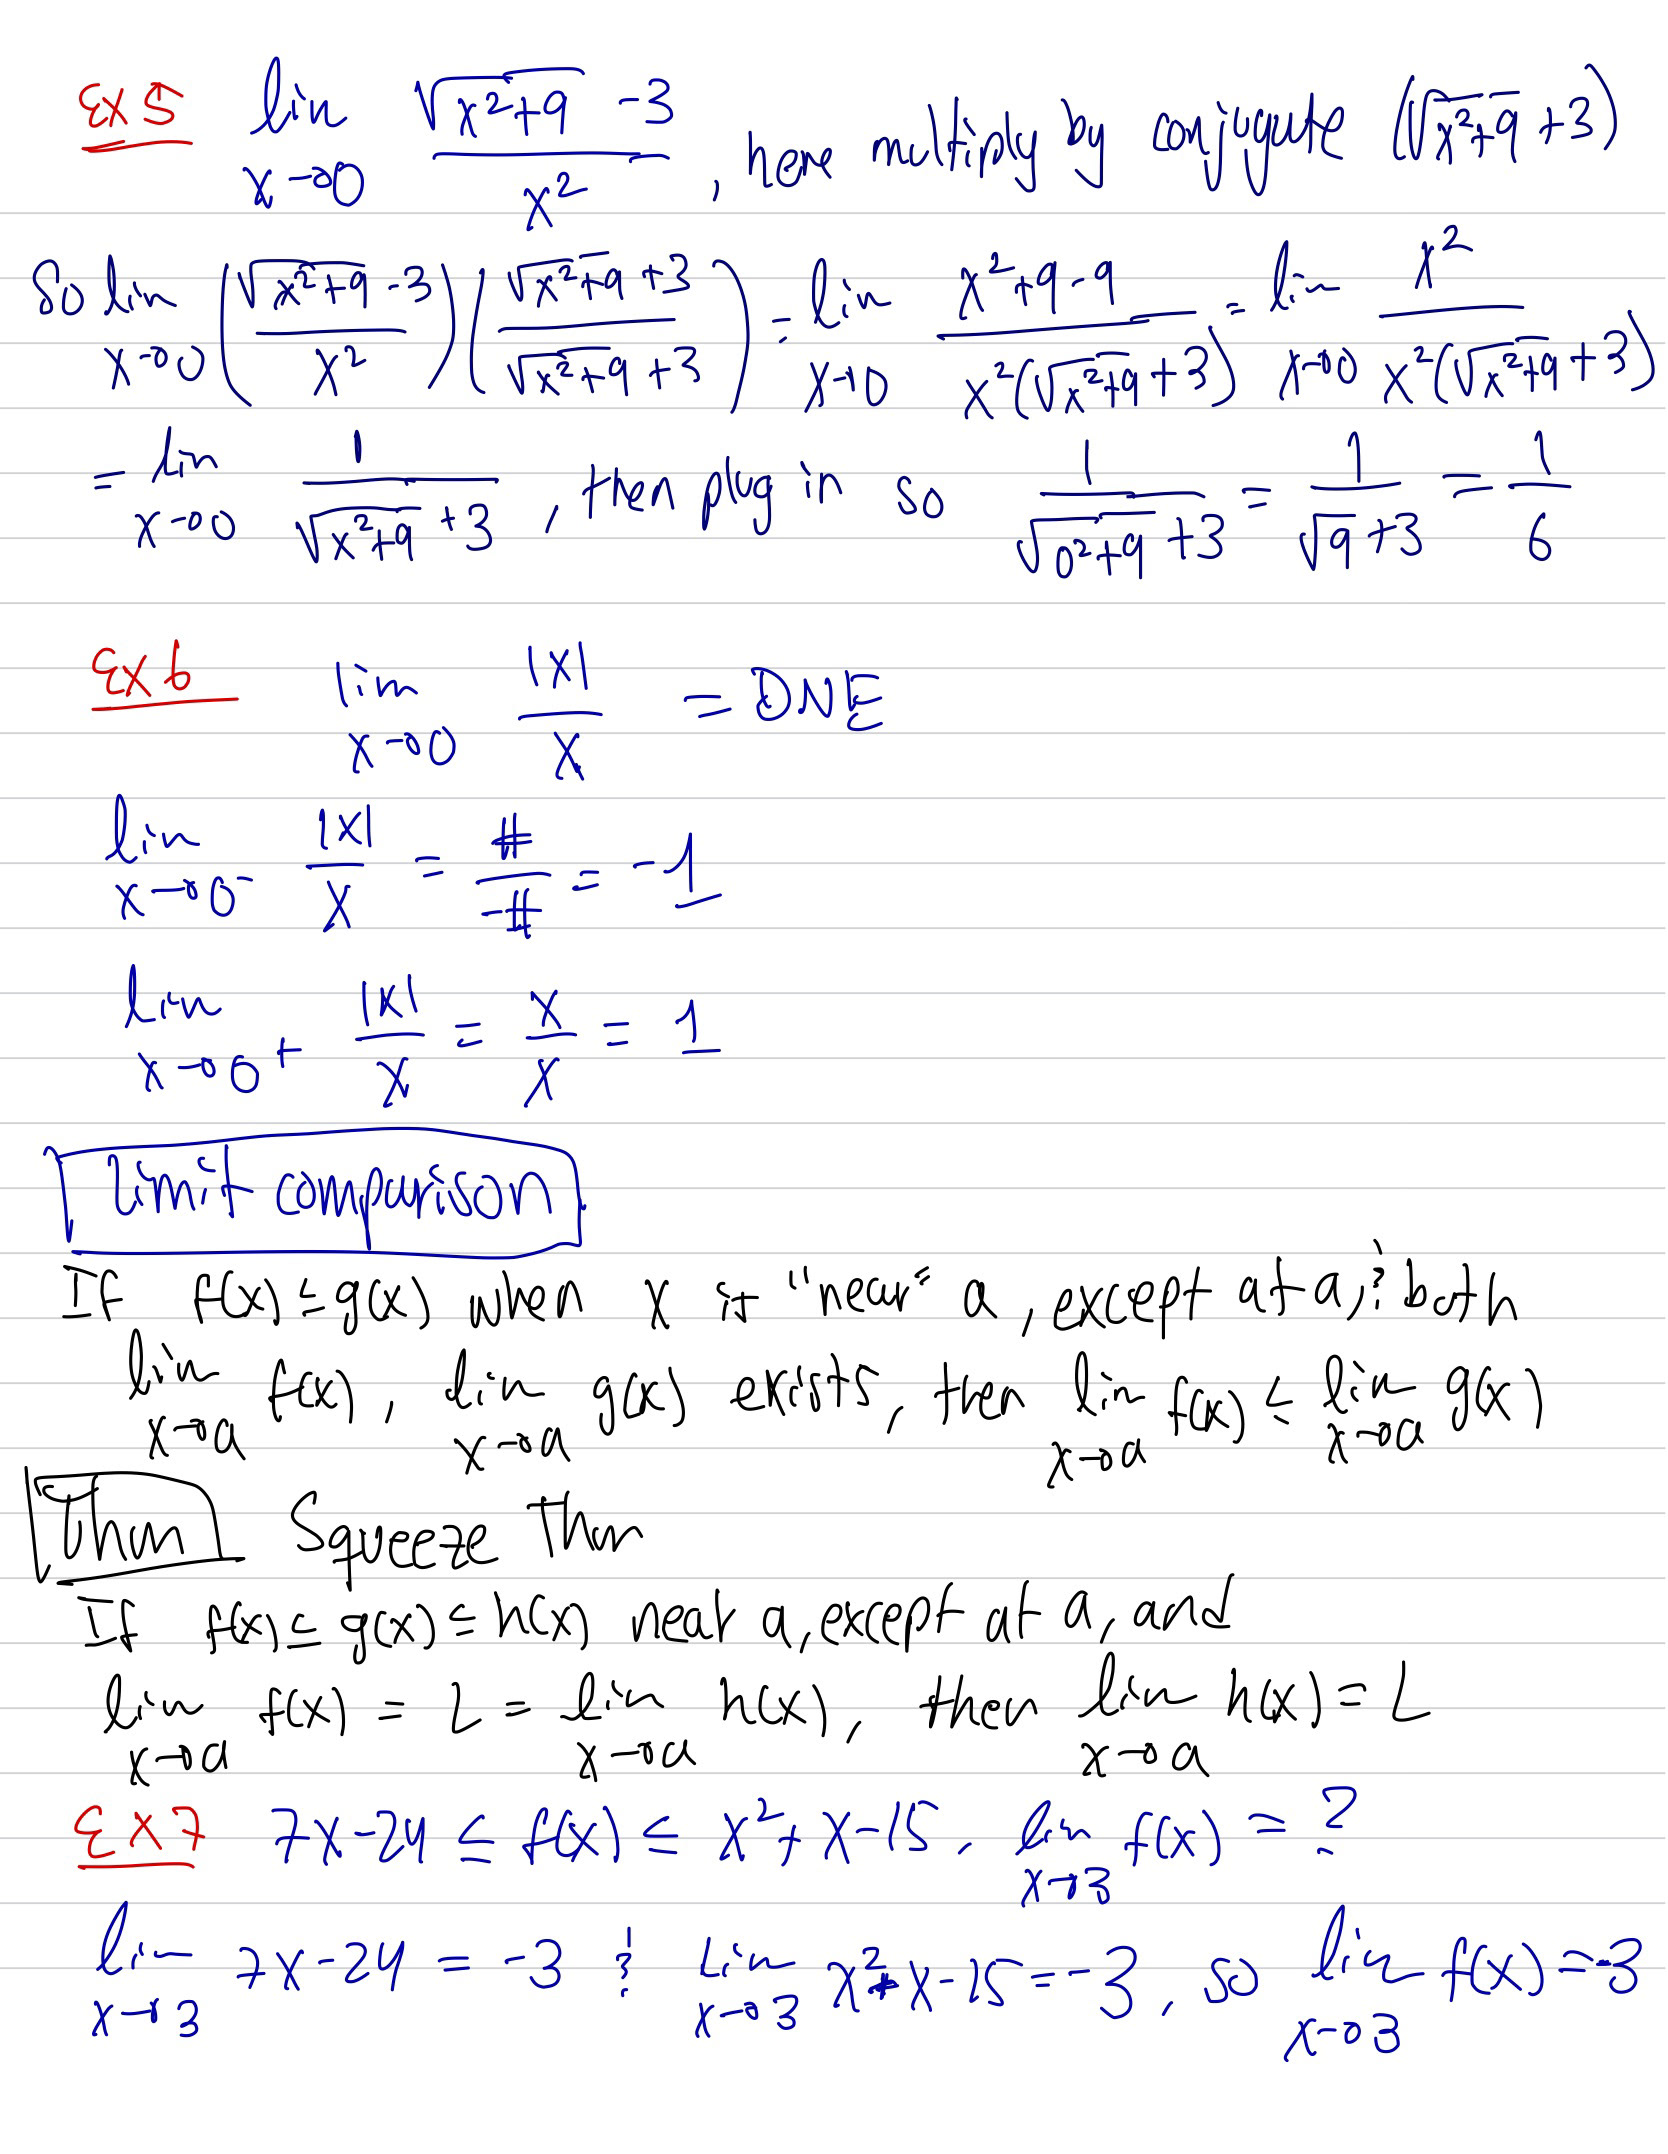 Ex 5 lim x→0 (√(x²+9) - 3)/x² , here multiply by conjugate (√(x²+9) + 3)
So lim x→0 ((√(x²+9) - 3)/x²) ((√(x²+9) + 3)/(√(x²+9) + 3)) = lim x→0 (x²+9-9)/(x²(√(x²+9) + 3)) = lim x→0 x²/(x²(√(x²+9) + 3))
= lim x→0 1/(√(x²+9) + 3) , then plug in so 1/(√(0²+9) + 3) = 1/(√9 + 3) = 1/6
Ex 6 lim x→0 |x|/x = DNE
lim x→0⁻ |x|/x = #/-# = -1
lim x→0⁺ |x|/x = x/x = 1
Limit comparison
If f(x) ≤ g(x) when x is "near" a, except at a, & both
lim x→a f(x), lim x→a g(x) exists, then lim x→a f(x) ≤ lim x→a g(x)
Thm Squeeze Thm
If f(x) ≤ g(x) ≤ h(x) near a, except at a, and
lim x→a f(x) = L = lim x→a h(x), then lim x→a h(x) = L
Ex 7 7x-24 ≤ f(x) ≤ x²+x-15. lim x→3 f(x) = ?
lim x→3 7x-24 = -3 & lim x→3 x²+x-15 = -3, so lim x→3 f(x) = -3